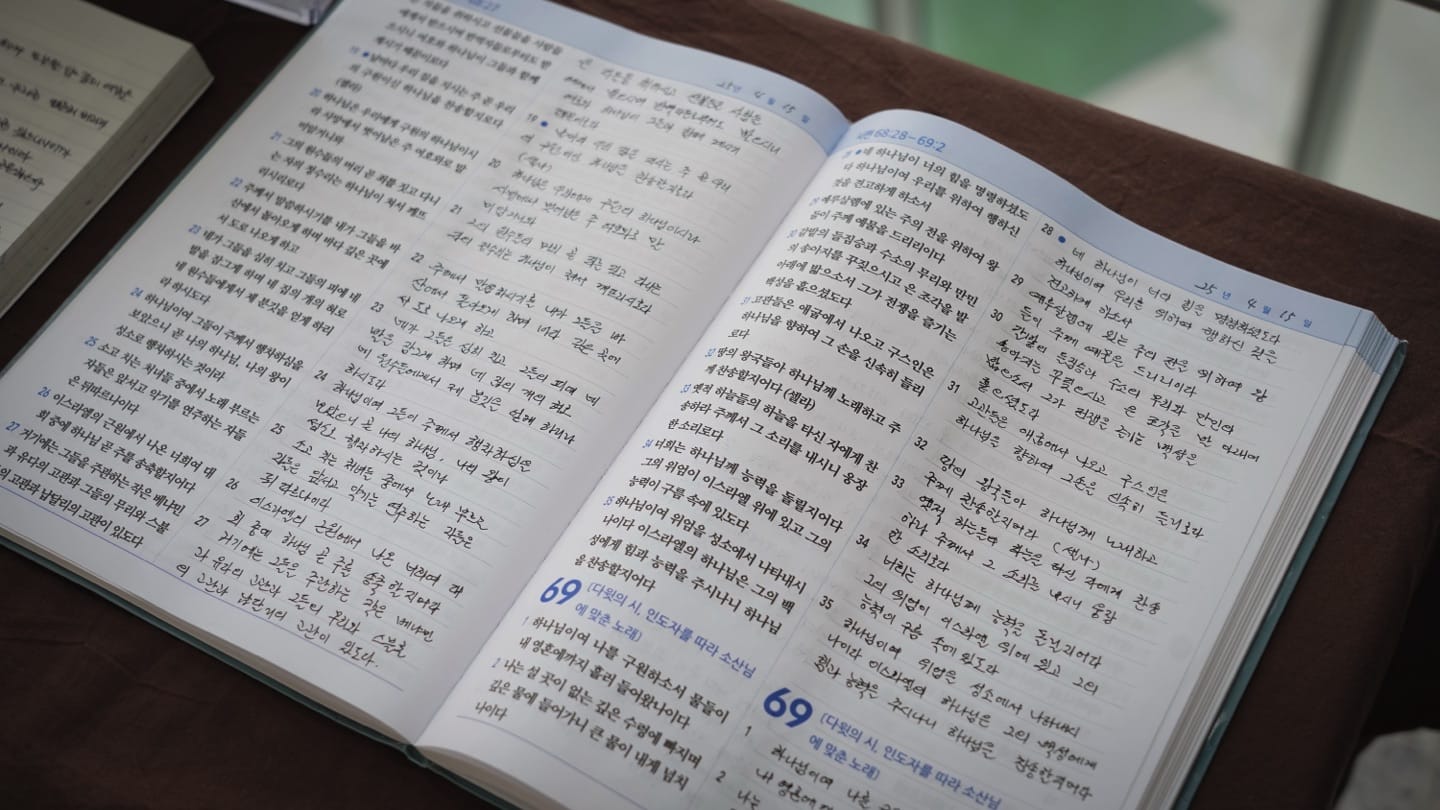 68:27
에게서 받으시며 반역자들로부터도 받
으시니 여호와 하나님이 그들과 함께
계시기 때문이로다
19 날마다 우리 짐을 지시는 주 곧 우리
의 구원이신 하나님을 찬송할지로다
(셀라)
20 하나님은 우리에게 구원의 하나님이시
라 사망에서 벗어남은 주 여호와로 말
미암거니와
21 그의 원수들의 머리 곧 죄를 짓고 다니
는 자의 정수리는 하나님이 쳐서 깨뜨
리시리로다
22 주께서 말씀하시기를 내가 그들을 바
산에서 돌아오게 하며 바다 깊은 곳에
서 도로 나오게 하고
23 네가 그들을 심히 치고 그들의 피에 네
발을 잠그게 하며 네 집의 개의 혀로
네 원수들에게서 제 분깃을 얻게 하리
라 하시도다
24 하나님이여 그들이 주께서 행차하심을
보았으니 곧 나의 하나님, 나의 왕이
성소로 행차하시는 것이라
25 소고 치는 처녀들 중에서 노래 부르는
자들은 앞서고 악기를 연주하는 자들
은 뒤따르나이다
26 이스라엘의 근원에서 나온 너희여 대
회 중에 하나님 곧 주를 송축할지어다
27 거기에는 그들을 주관하는 작은 베냐민
과 유다의 고관과 그들의 무리와 스불
론의 고관과 납달리의 고관이 있도다
25년 4월 15일
19
20
하나님은 우리에게 구원의 하나님이시라
사망에서 벗어남은 주 여호와로 말
미암거니와
21
22 주께서 말씀하시기를 내가 그들을 바
산에서 돌아오게 하며 바다 깊은 곳에
서 도로 나오게 하고
23 네가 그들을 심히 치고 그들의 피에 네
발을 잠그게 하며 네 집의 개의 혀로
네 원수들에게서 제 분깃을 얻게 하리라
하시도다
24 하나님이여 그들이 주께서 행차하심을
보았으니 곧 나의 하나님, 나의 왕이
행차하시는 것이라
25 소고 치는 처녀들 중에서 노래 부르는
자들은 앞서고 악기를 연주하는 자들은
뒤 따르나이다
26 이스라엘의 근원에서 나온 너희여 대
회 중에 하나님 곧 주를 송축할지어다
27 거기에는 그들을 주관하는 작은 베냐민
과 유다의 고관과 그들의 무리와 스불론
의 고관과 납달리의 고관이 있도다.
시편 68:28-69:2
28 네 하나님이 너의 힘을 명령하셨도
다 하나님이여 우리를 위하여 행하신
것을 견고하게 하소서
29 예루살렘에 있는 주의 전을 위하여 왕
들이 주께 예물을 드리리이다
30 갈밭의 들짐승과 수소의 무리와 만민
의 송아지를 꾸짖으시고 은 조각을 발
아래에 밟으소서 그가 전쟁을 즐기는
백성을 흩으셨도다
31 고관들은 애굽에서 나오고 구스인은
하나님을 향하여 그 손을 신속히 들리
로다
32 땅의 왕국들아 하나님께 노래하고 주
께 찬송할지어다 (셀라)
33 옛적 하늘들의 하늘을 타신 자에게 찬
송하라 주께서 그 소리를 내시니 웅장
한 소리로다
34 너희는 하나님께 능력을 돌릴지어다
그의 위엄이 이스라엘 위에 있고 그의
능력이 구름 속에 있도다
35 하나님이여 위엄을 성소에서 나타내시
나이다 이스라엘의 하나님은 그의 백
성에게 힘과 능력을 주시나니 하나님
을 찬송할지어다
69 (다윗의 시, 인도자를 따라 소산님
에 맞춘 노래)
1 하나님이여 나를 구원하소서 물들이
내 영혼에까지 흘러 들어왔나이다
2 나는 설 곳이 없는 깊은 수렁에 빠지며
깊은 물에 들어가니 큰 물이 내게 넘치
나이다
25년 4월 15일
28 네 하나님이 너의 힘을 명령하셨도다
하나님이여 우리를 위하여 행하신 것을
견고하게 하소서
29 예루살렘에 있는 주의 전을 위하여 왕
들이 주께 예물을 드리니이다
30 갈밭의 들짐승과 수소의 무리와 만민의
송아지를 꾸짖으시고 은 조각을 발 아래에
밟으소서 그가 전쟁을 즐기는 백성을
흩으셨도다
31 고관들은 애굽에서 나오고 구스인은
하나님을 향하여 그 손을 신속히 들리로다
32 땅의 왕국들아 하나님께 노래하고
주께 찬송할지어라 (셀라)
33
하라 주께서 그 소리를 내시니 웅장
한 소리로다
34 너희는 하나님께 능력을 돌릴지어다
그의 위엄이 이스라엘 위에 있고 그의
능력이 구름 속에 있도다
35 하나님이여 위엄을 성소에서 나타내시
나이다 이스라엘의 하나님은 그의 백성에게
힘과 능력을 주시나니 하나님을 찬송할지어다
69 (다윗의 시, 인도자를 따라 소산님
에 맞춘 노래)
1 하나님이여 나를
내 영혼에
2 나는